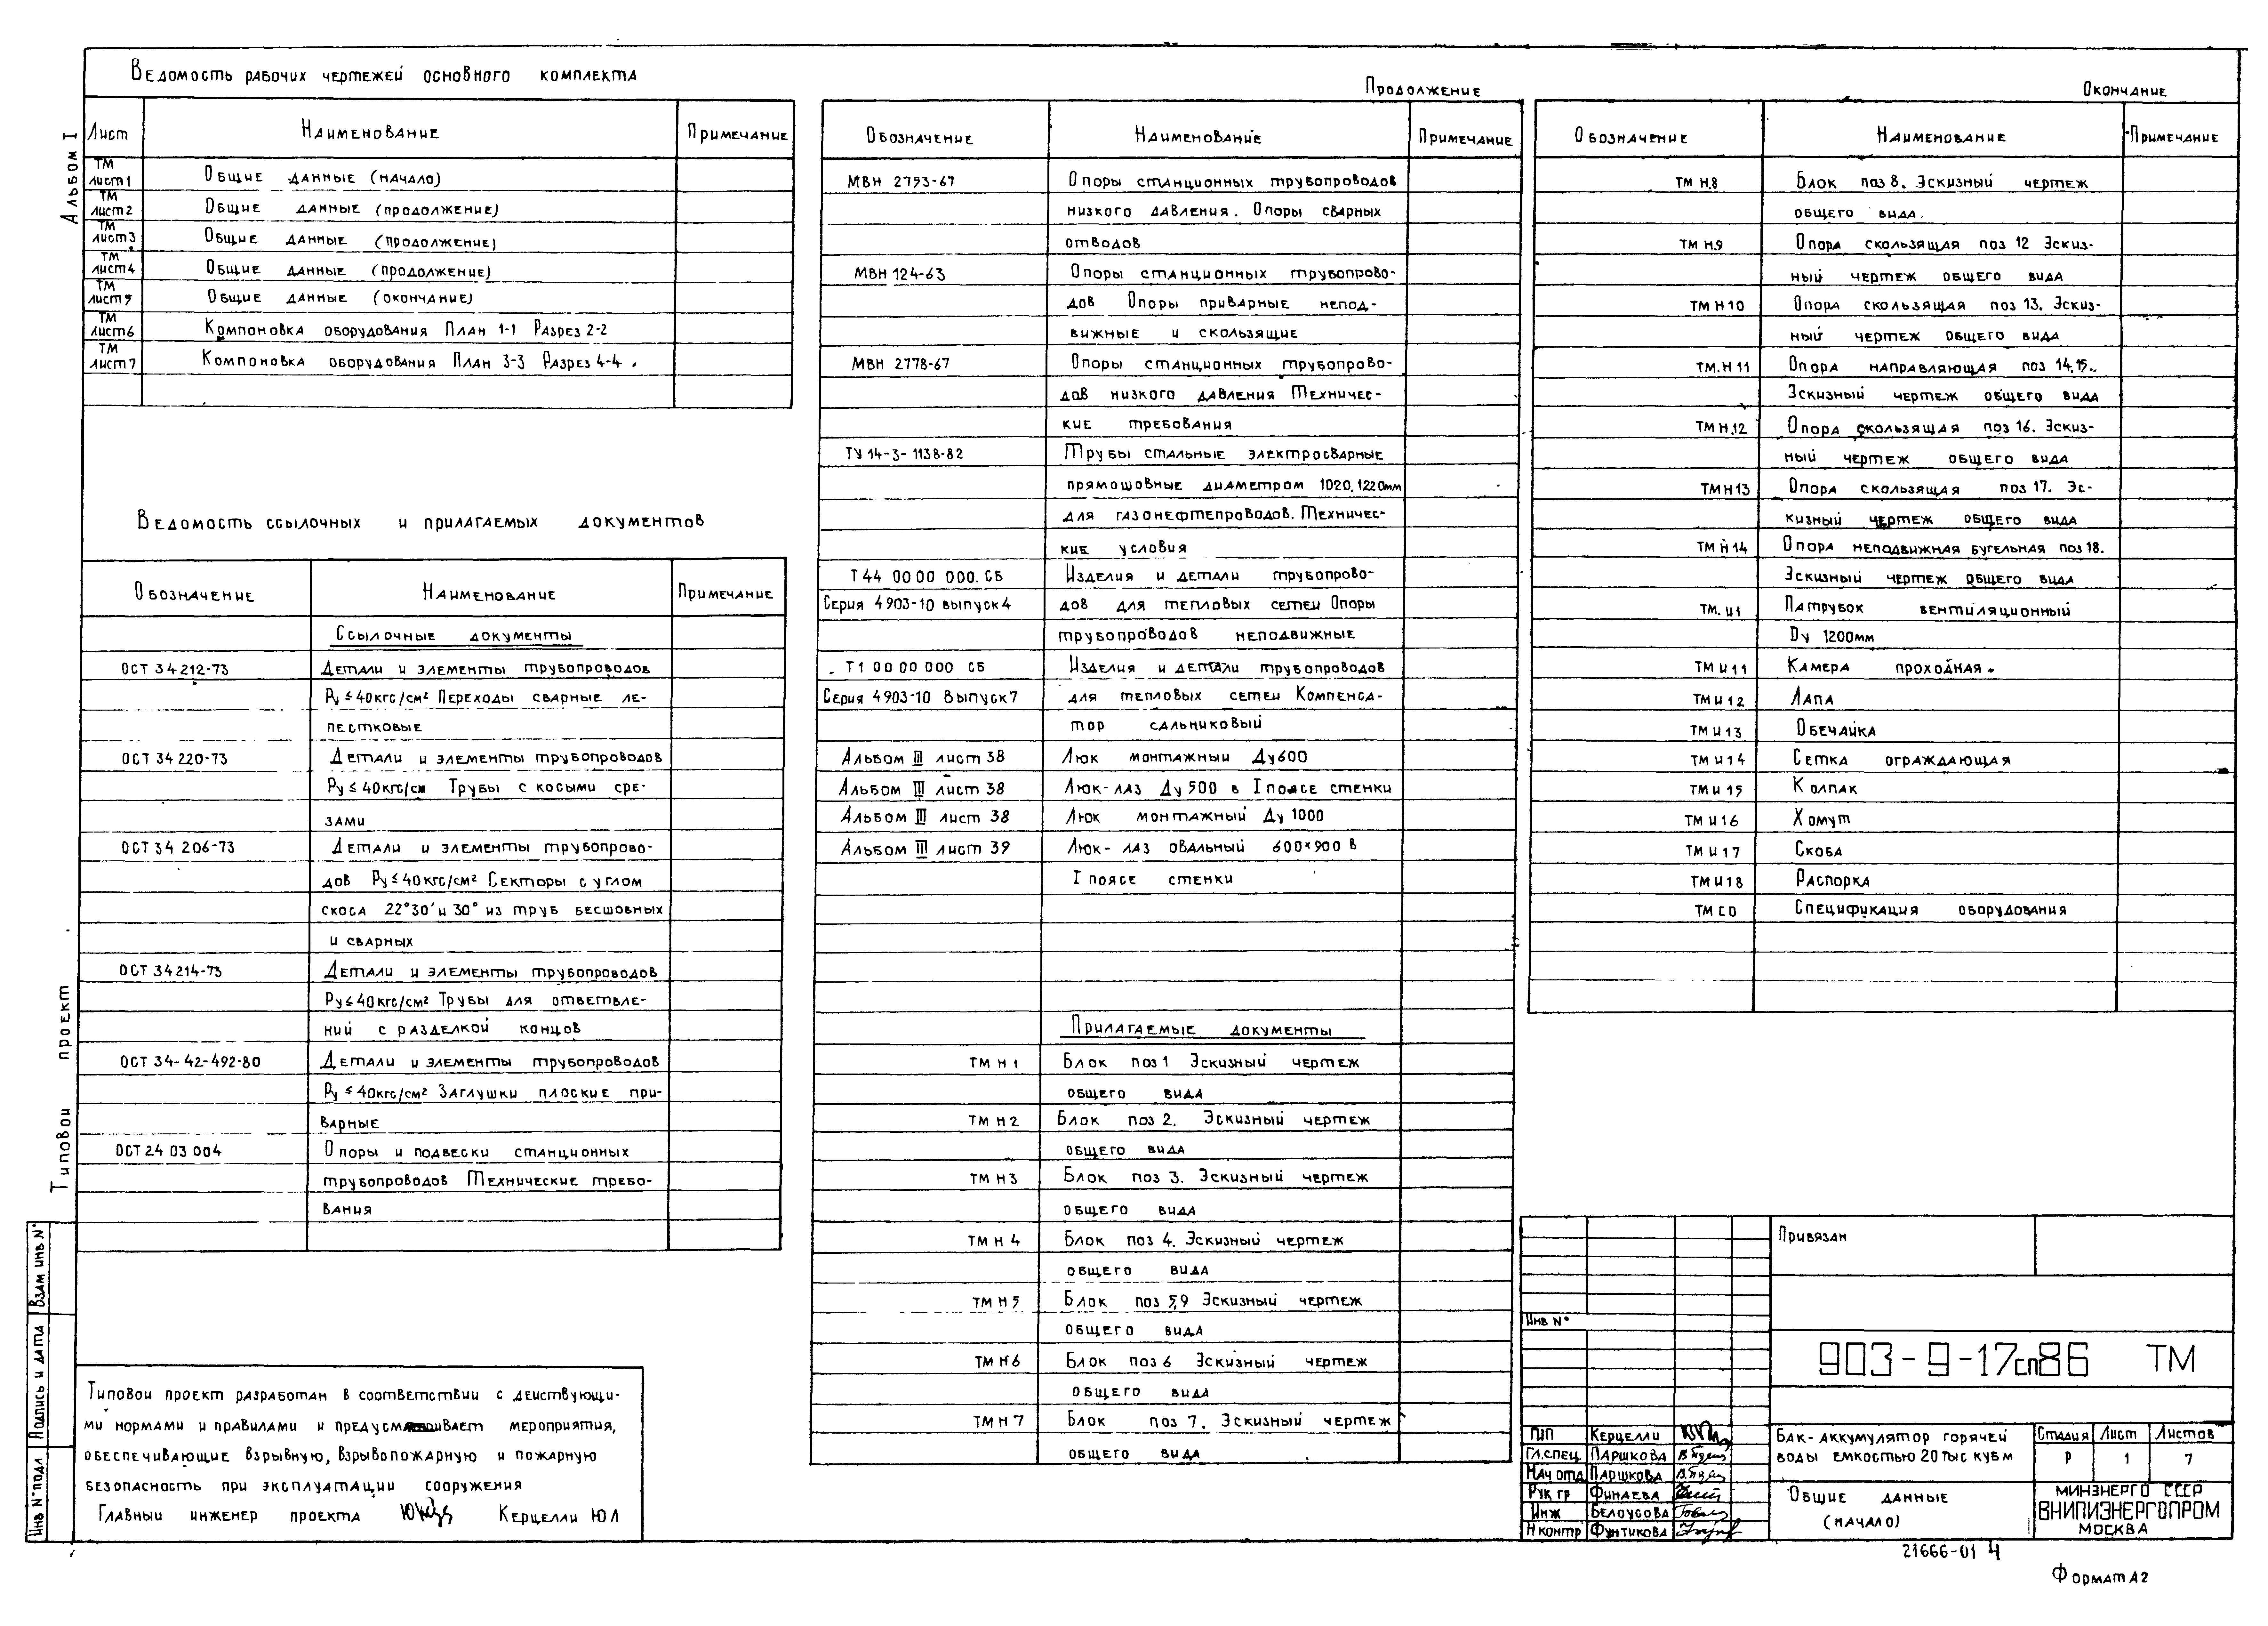 Альбом I
Типовои проект
Взам инв №
Подпись и дата
Инв № подл
Ведомость рабочих чертежей основного комплекта
Лист Наименование Примечание
ТМ лист1 Общие данные (начало)
ТМ лист2 Общие данные (продолжение)
ТМ лист3 Общие данные (продолжение)
ТМ лист4 Общие данные (продолжение)
ТМ лист5 Общие данные (окончание)
ТМ лист6 Компоновка оборудования План 1-1 Разрез 2-2
ТМ лист7 Компоновка оборудования План 3-3 Разрез 4-4.
Ведомость ссылочных и прилагаемых документов
Обозначение Наименование Примечание
Ссылочные документы
ОСТ 34 212-73 Детали и элементы трубопроводов
Ру ≤ 40кгс/см² Переходы сварные ле-
пестковые
ОСТ 34 220-73 Детали и элементы трубопроводов
Ру ≤ 40кгс/см Трубы с косыми сре-
зами
ОСТ 34 206-73 Детали и элементы трубопрово-
дов Ру ≤ 40кгс/см² Секторы с углом
скоса 22°30' и 30° из труб бесшовных
и сварных
ОСТ 34 214-73 Детали и элементы трубопроводов
Ру ≤ 40кгс/см² Трубы для ответвле-
ний с разделкой концов
ОСТ 34-42-492-80 Детали и элементы трубопроводов
Ру ≤ 40кгс/см² Заглушки плоские при-
варные
ОСТ 24 03 004 Опоры и подвески станционных
трубопроводов Технические требо-
вания
Типовои проект разработан в соответствии с действующи-
ми нормами и правилами и предусматривает мероприятия,
обеспечивающие взрывную, взрывопожарную и пожарную
безопасность при эксплуатации сооружения
Главный инженер проекта Керцелли Ю Л
Продолжение
Обозначение Наименование Примечание
МВН 2753-67 Опоры станционных трубопроводов
низкого давления. Опоры сварных
отводов
МВН 124-63 Опоры станционных трубопрово-
дов Опоры приварные непод-
вижные и скользящие
МВН 2778-67 Опоры станционных трубопрово-
дов низкого давления Техничес-
кие требования
ТУ 14-3-1138-82 Трубы стальные электросварные
прямошовные диаметром 1020, 1220мм
для газонефтепроводов. Техничес-
кие условия
Т 44 00 00 000. СБ Изделия и детали трубопрово-
Серия 4 903-10 выпуск 4 дов для тепловых сетеи Опоры
трубопроводов неподвижные
Т 1 00 00 000 СБ Изделия и детали трубопроводов
Серия 4 903-10 Выпуск 7 для тепловых сетеи Компенса-
тор сальниковый
Альбом III лист 38 Люк монтажный Ду600
Альбом III лист 38 Люк-лаз Ду 500 в I поясе стенки
Альбом III лист 38 Люк монтажный Ду 1000
Альбом III лист 39 Люк-лаз овальный 600×900 в
I поясе стенки
Прилагаемые документы
ТМ Н1 Блок поз 1 Эскизный чертеж
общего вида
ТМ Н2 Блок поз 2. Эскизный чертеж
общего вида
ТМ Н3 Блок поз 3. Эскизный чертеж
общего вида
ТМ Н 4 Блок поз 4. Эскизный чертеж
общего вида
ТМ Н5 Блок поз 5,9 Эскизный чертеж
общего вида
ТМ Н6 Блок поз 6 Эскизный чертеж
общего вида
ТМ Н7 Блок поз 7. Эскизный чертеж
общего вида
Окончание
Обозначение Наименование Примечание
ТМ Н.8 Блок поз 8. Эскизный чертеж
общего вида.
ТМ Н.9 Опора скользящая поз 12 Эскиз-
ный чертеж общего вида
ТМ Н10 Опора скользящая поз 13. Эскиз-
ный чертеж общего вида
ТМ.Н 11 Опора направляющая поз 14,15..
Эскизный чертеж общего вида
ТМ Н.12 Опора скользящая поз 16. Эскиз-
ный чертеж общего вида
ТМ Н13 Опора скользящая поз 17. Эс-
кизный чертеж общего вида
ТМ Н 14 Опора неподвижная бугельная поз 18.
Эскизный чертеж общего вида
ТМ. И1 Патрубок вентиляционный
Dу 1200мм
ТМ И 11 Камера проходная.
ТМ И 12 Лапа
ТМ И 13 Обечайка
ТМ И 14 Сетка ограждающая
ТМ И 15 Колпак
ТМ И 16 Хомут
ТМ И 17 Скоба
ТМ И 18 Распорка
ТМ СО Спецификация оборудования
Привязан
Инв №
903-9-17сп86 ТМ
ГИП Керцелли
Гл.спец Паршкова
Нач отд Паршкова
Рук гр Финаева
Инж Белоусова
Н контр Фунтикова
Бак-аккумулятор горячей
воды емкостью 20 тыс куб м
Стадия Лист Листов
Р 1 7
Общие данные
(начало)
МИНЭНЕРГО СССР
ВНИПИЭНЕРГОПРОМ
МОСКВА
21666-01 4
Формат А2